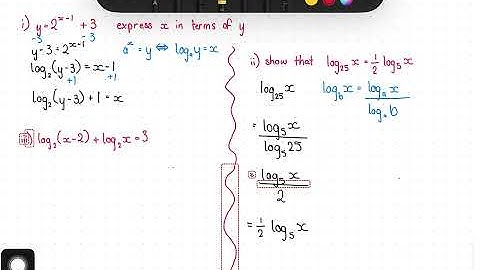 i) y=2^(x-1) + 3 express x in terms of y
-3 -3
y-3=2^(x-1) a^x=y ⇔ logₐy=x
log₂(y-3)=x-1
+1 +1
log₂(y-3)+1=x
iii) log₂(x-2)+log₂x=3
ii) show that log₂₅x=½log₅x
log₂₅x log_b x=logₐx/logₐb
=log₅x/log₅25
=log₅x/2
=½log₅x